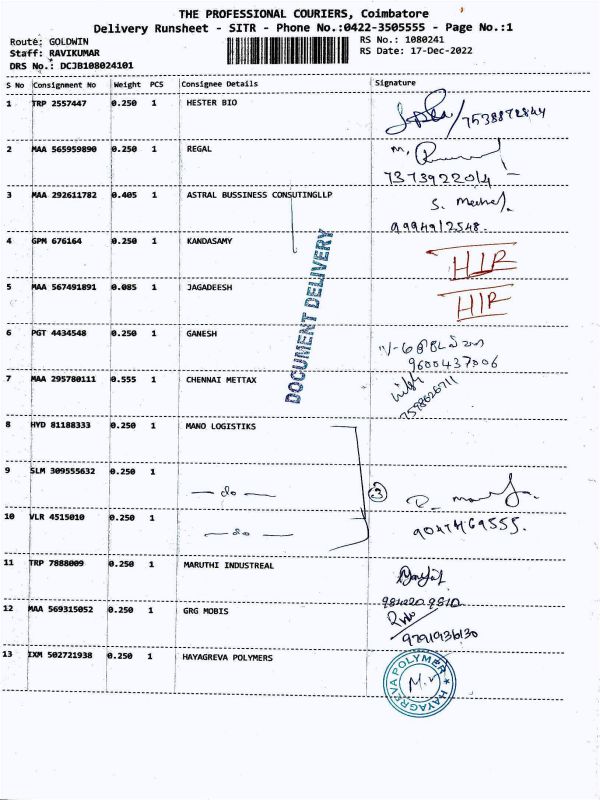 THE PROFESSIONAL COURIERS, Coimbatore
Delivery Runsheet - SITR - Phone No.:0422-3505555 - Page No.:1
Route: GOLDWIN RS No.: 1080241
Staff: RAVIKUMAR RS Date: 17-Dec-2022
DRS No.: DCJB108024101
S No Consignment No Weight PCS Consignee Details Signature
1 TRP 2557447 0.250 1 HESTER BIO
7538872844
2 MAA 565959890 0.250 1 REGAL
7373922014
3 MAA 292611782 0.405 1 ASTRAL BUSSINESS CONSUTINGLLP
9994912548.
4 GPM 676164 0.250 1 KANDASAMY HIR
5 MAA 567491891 0.085 1 JAGADEESH HIR
DOCUMENT DELIVERY
6 PGT 4434548 0.250 1 GANESH
9600437006
7 MAA 295780111 0.555 1 CHENNAI METTAX
8 HYD 81188333 0.250 1 MANO LOGISTIKS
9 SLM 309555632 0.250 1
— do — 3
10 VLR 4515010 0.250 1
— do —
11 TRP 7888009 0.250 1 MARUTHI INDUSTREAL
12 MAA 569315052 0.250 1 GRG MOBIS
13 IXM 502721938 0.250 1 HAYAGREVA POLYMERS
HAYAGREVA POLYMER